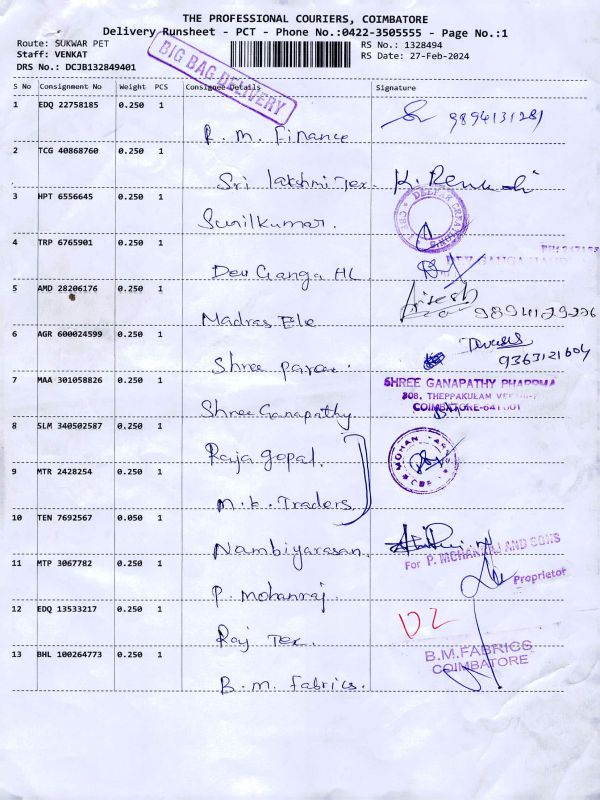 THE PROFESSIONAL COURIERS, COIMBATORE
Delivery Runsheet - PCT - Phone No.:0422-3505555 - Page No.:1
Route: SUKWAR PET
RS No.: 1328494
Staff: VENKAT
RS Date: 27-Feb-2024
DRS No.: DCJB132849401
BIG BAG DELIVERY
S No Consignment No Weight PCS Consignee Details Signature
1 EDQ 22758185 0.250 1
R. M. Finance 9894131281
2 TCG 40868760 0.250 1
Sri lakshmi Tex.
3 HPT 6556645 0.250 1
Sunilkumar.
4 TRP 6765901 0.250 1
Dev Ganga HL
5 AMD 28206176 0.250 1
Madras Ele
6 AGR 600024599 0.250 1
Shree 9363121604
7 MAA 301058826 0.250 1
SHREE GANAPATHY PHARMA
308, THEPPAKULAM
COIMBATORE-641 001
Shree Ganapathy
8 SLM 340502587 0.250 1
Raja gopal.
9 MTR 2428254 0.250 1
M.K. Traders
10 TEN 7692567 0.050 1
Nambiyarasan.
For P. MOHANRAJ AND SONS
11 MTP 3067782 0.250 1
Proprietor
P. mohanraj.
12 EDQ 13533217 0.250 1
Raj Tex.
13 BHL 100264773 0.250 1
B.M.FABRICS
COIMBATORE
B.m. Fabrics.